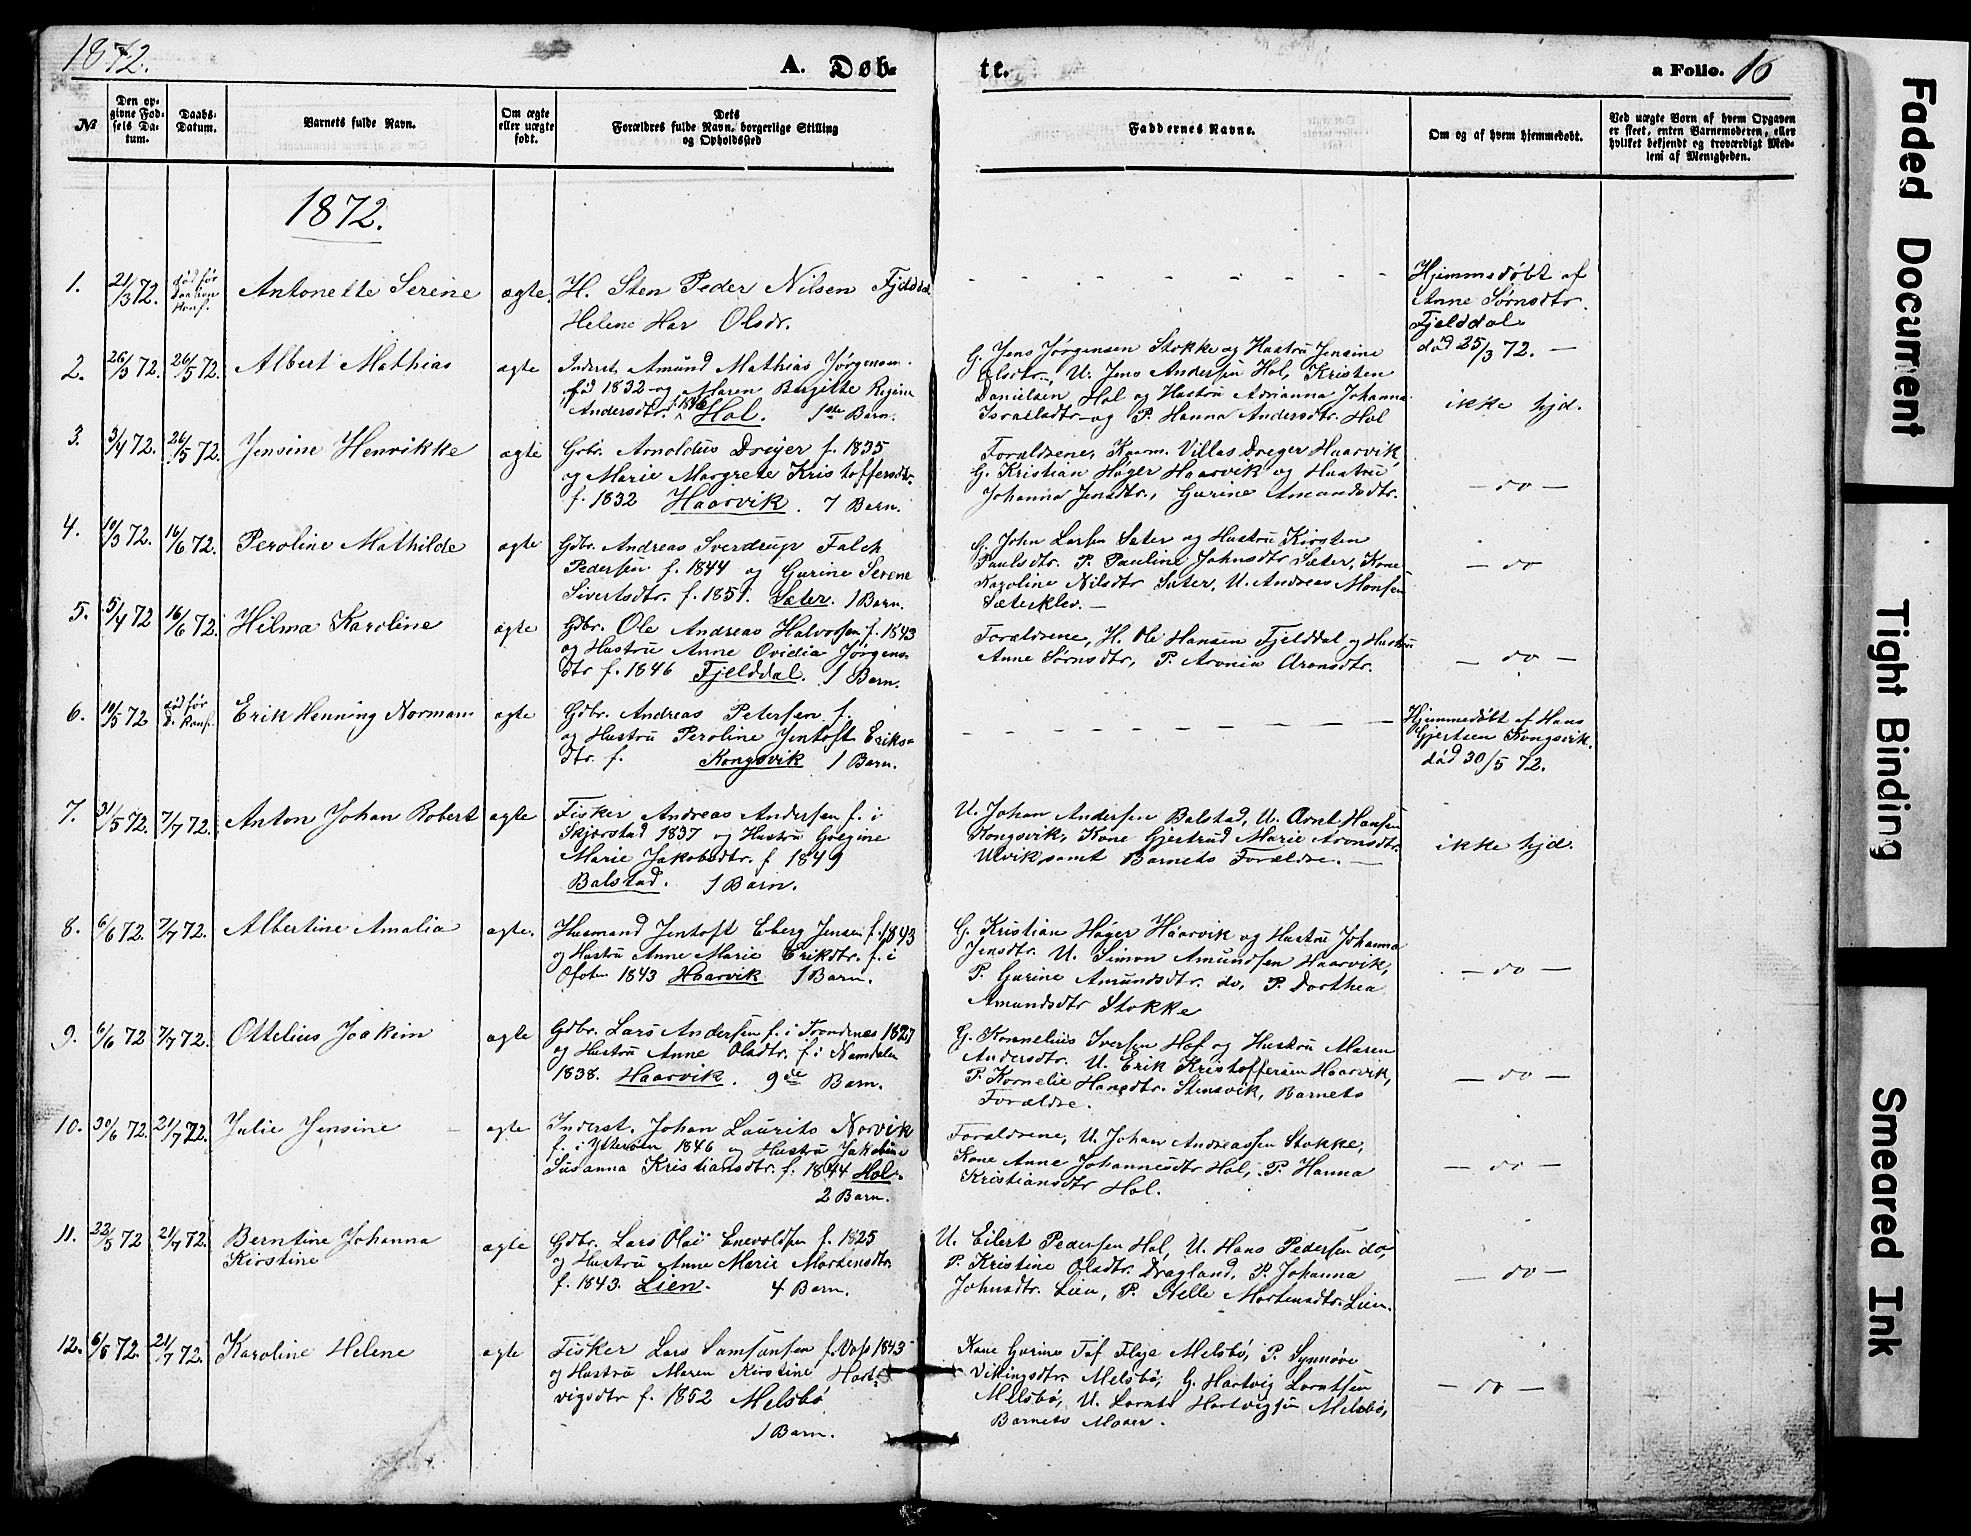 1872.
A. Døb-
te.
a Folio. 16
№
Den op-
givne Fød-
sels Da-
tum.
Daabs-
Datum.
Barnets fulde Navn.
Om ægte
eller uægte
født.
Dets
Forældres fulde Navn, borgerlige Stilling
og Opholdssted
Faddernes Navne.
Om og af hvem hjemmedøbt.
Ved uægte Børn af hvem Opgaven
er skeet, enten Barnemoderen, eller
hvilket bekjendt og troværdigt Med-
lem af Menigheden.
1872.
1. 21/3 72. død før Daaben Antonette Serine ægte. H. Sten Peder Nilsen Fjelddal
Helene Mar Olsdr.
Hjemmedøbt af
Anne Sørnsdtr
Fjelddal
død 25/3 72. —
2. 26/3 72. 26/5 72. Albert Mathias ægte Inderst Amund Mathias Jørgensen
fød 1832 og Maren Birgitte Regine
Andersdtr. f. 1846 Hol. 1ste Barn.
G. Jens Jørgensen Stokke og Hustru Jensine
Olsdtr., U. Jens Andersen Hol, Kristen
Danielsen Hol og Hustru Adrianna Johanna
Israelsdtr og P. Hanna Andersdtr. Hol
ikke hjd.
3. 3/4 72. 26/5 72. Jensine Henrikke ægte Gbr. Arnoldus Dreyer f. 1835
og Marie Margrete Kristoffersdtr.
f. 1832 Haarvik. 7 Barn.
Forældrene, Kaarm. Villas Dreyer Haarvik,
G. Kristian Høyer Haarvik og Hustru
Johanna Jensdtr., Gurine Amundsdtr.
— do —
4. 10/3 72. 16/6 72. Peroline Mathilde ægte Gdbr. Andreas Sverdrup Falch
Pedersen f. 1844 og Gurine Serene
Sivertsdtr. f. 1851. Sæter. 1 Barn.
G. John Larsen Sæter og Hustru Kirsten
Paulsdtr. P. Pauline Johnsdtr Sæter, Kone
Karoline Nilsdtr Sæter, U. Andreas Monsen
Sæterklev. —
— do
5. 5/4 72 16/6 72. Hilma Karoline ægte Gdbr. Ole Andreas Halvorsen f. 1843
og Hustru Anne Ovidia Jørgens-
dtr f. 1846 Fjelddal. 1 Barn.
Forældrene, H. Ole Hansen Fjelddal og Hustru
Anne Sørnsdtr, P. Aronia Aronsdtr.
— do —
6. 10/5 72 død før D. Konf. Erik Henning Normann ægte Gdbr. Andreas Petersen f.
og Hustru Peroline Jentoft Eriks-
dtr. f. Kongsvik 1 Barn.
Hjemmedøbt af Hans
Gjertsen Kongsvik.
død 30/5 72.
7. 31/5 72. 7/7 72. Anton Johan Robert ægte Fisker Andreas Andersen f. i
Skjerstad 1837 og Hustru Golgine
Marie Jakobsdtr. f 1849
Balstad. 1 Barn.
U. Johan Andersen Balstad, U. Arnt Hansen
Kongsvik, Kone Gjertrud Marie Aronsdtr.
Ulvik, samt Barnets Forældre. —
ikke hjd.
8. 6/6 72. 7/7 72. Albertine Amalia ægte. Husmand Jentoft Eberg Jensen f. 1843
og Hustru Anne Marie Erikdtr. f. i
Ofoten 1843 Haarvik 1 Barn.
G. Kristian Høyer Haarvik og Hustru Johanna
Jensdtr. U. Simon Amundsen Haarvik,
P. Gurine Amundsdtr. do, P. Dorthea
Amundsdtr Stokke
— do —
9. 6/6 72 7/7 72. Ottelius Joakim ægte Gdbr. Lars Andersen f. i Trondenes 1827
og Hustru Anne Olsdtr. f. i Namdalen
1838. Haarvik. 9de Barn.
G. Kornelius Iversen Hof og Hustru Maren
Andersdtr. U. Erik Kristoffersen Haarvik,
P. Kornelie Hansdtr. Stensvik, Barnets
Forældre.
— do —
10. 30/6 72. 21/7 72. Julie Jensine ægte Inderst. Johan Laurits Norvik
f. i Ytterøen 1846 og Hustru Jakobine
Susanna Kristiansdtr. f. 1844 Hol.
2 Barn.
Forældrene, U. Johan Andreassen Stokke,
Kone Anne Johannesdtr Hol, P. Hanna
Kristiansdtr Hol.
— do —
11. 22/5 72 21/7 72. Berntine Johanna
Kirstine ægte Gdbr. Lars Olai Enevoldsen f. 1825
og Hustru Anne Marie Mortensdtr
f. 1843. Lien. 4 Barn.
U. Eilert Pedersen Hol, U. Hans Pedersen do,
P. Kristine Olsdtr. Dragland, P. Johanna
Johnsdtr. Lien, P. Helle Mortensdtr. Lien.
— do —
12. 6/6 72. 21/7 72. Karoline Helene ægte Fisker Lars Samsonsen f. Voss 1843
og Hustru Maren Kirstine Hart-
vigsdtr f. 1852 Melsbø
1 Barn.
Kone Gurine Melsbø, P. Synnøve
Vikingsdtr. Melsbø, G. Hartvig Lorntsen
Melsbø, U. Lornts Hartvigsen Melsbø,
Barnets Moder.
— do —
Faded Document
Tight Binding
Smeared Ink